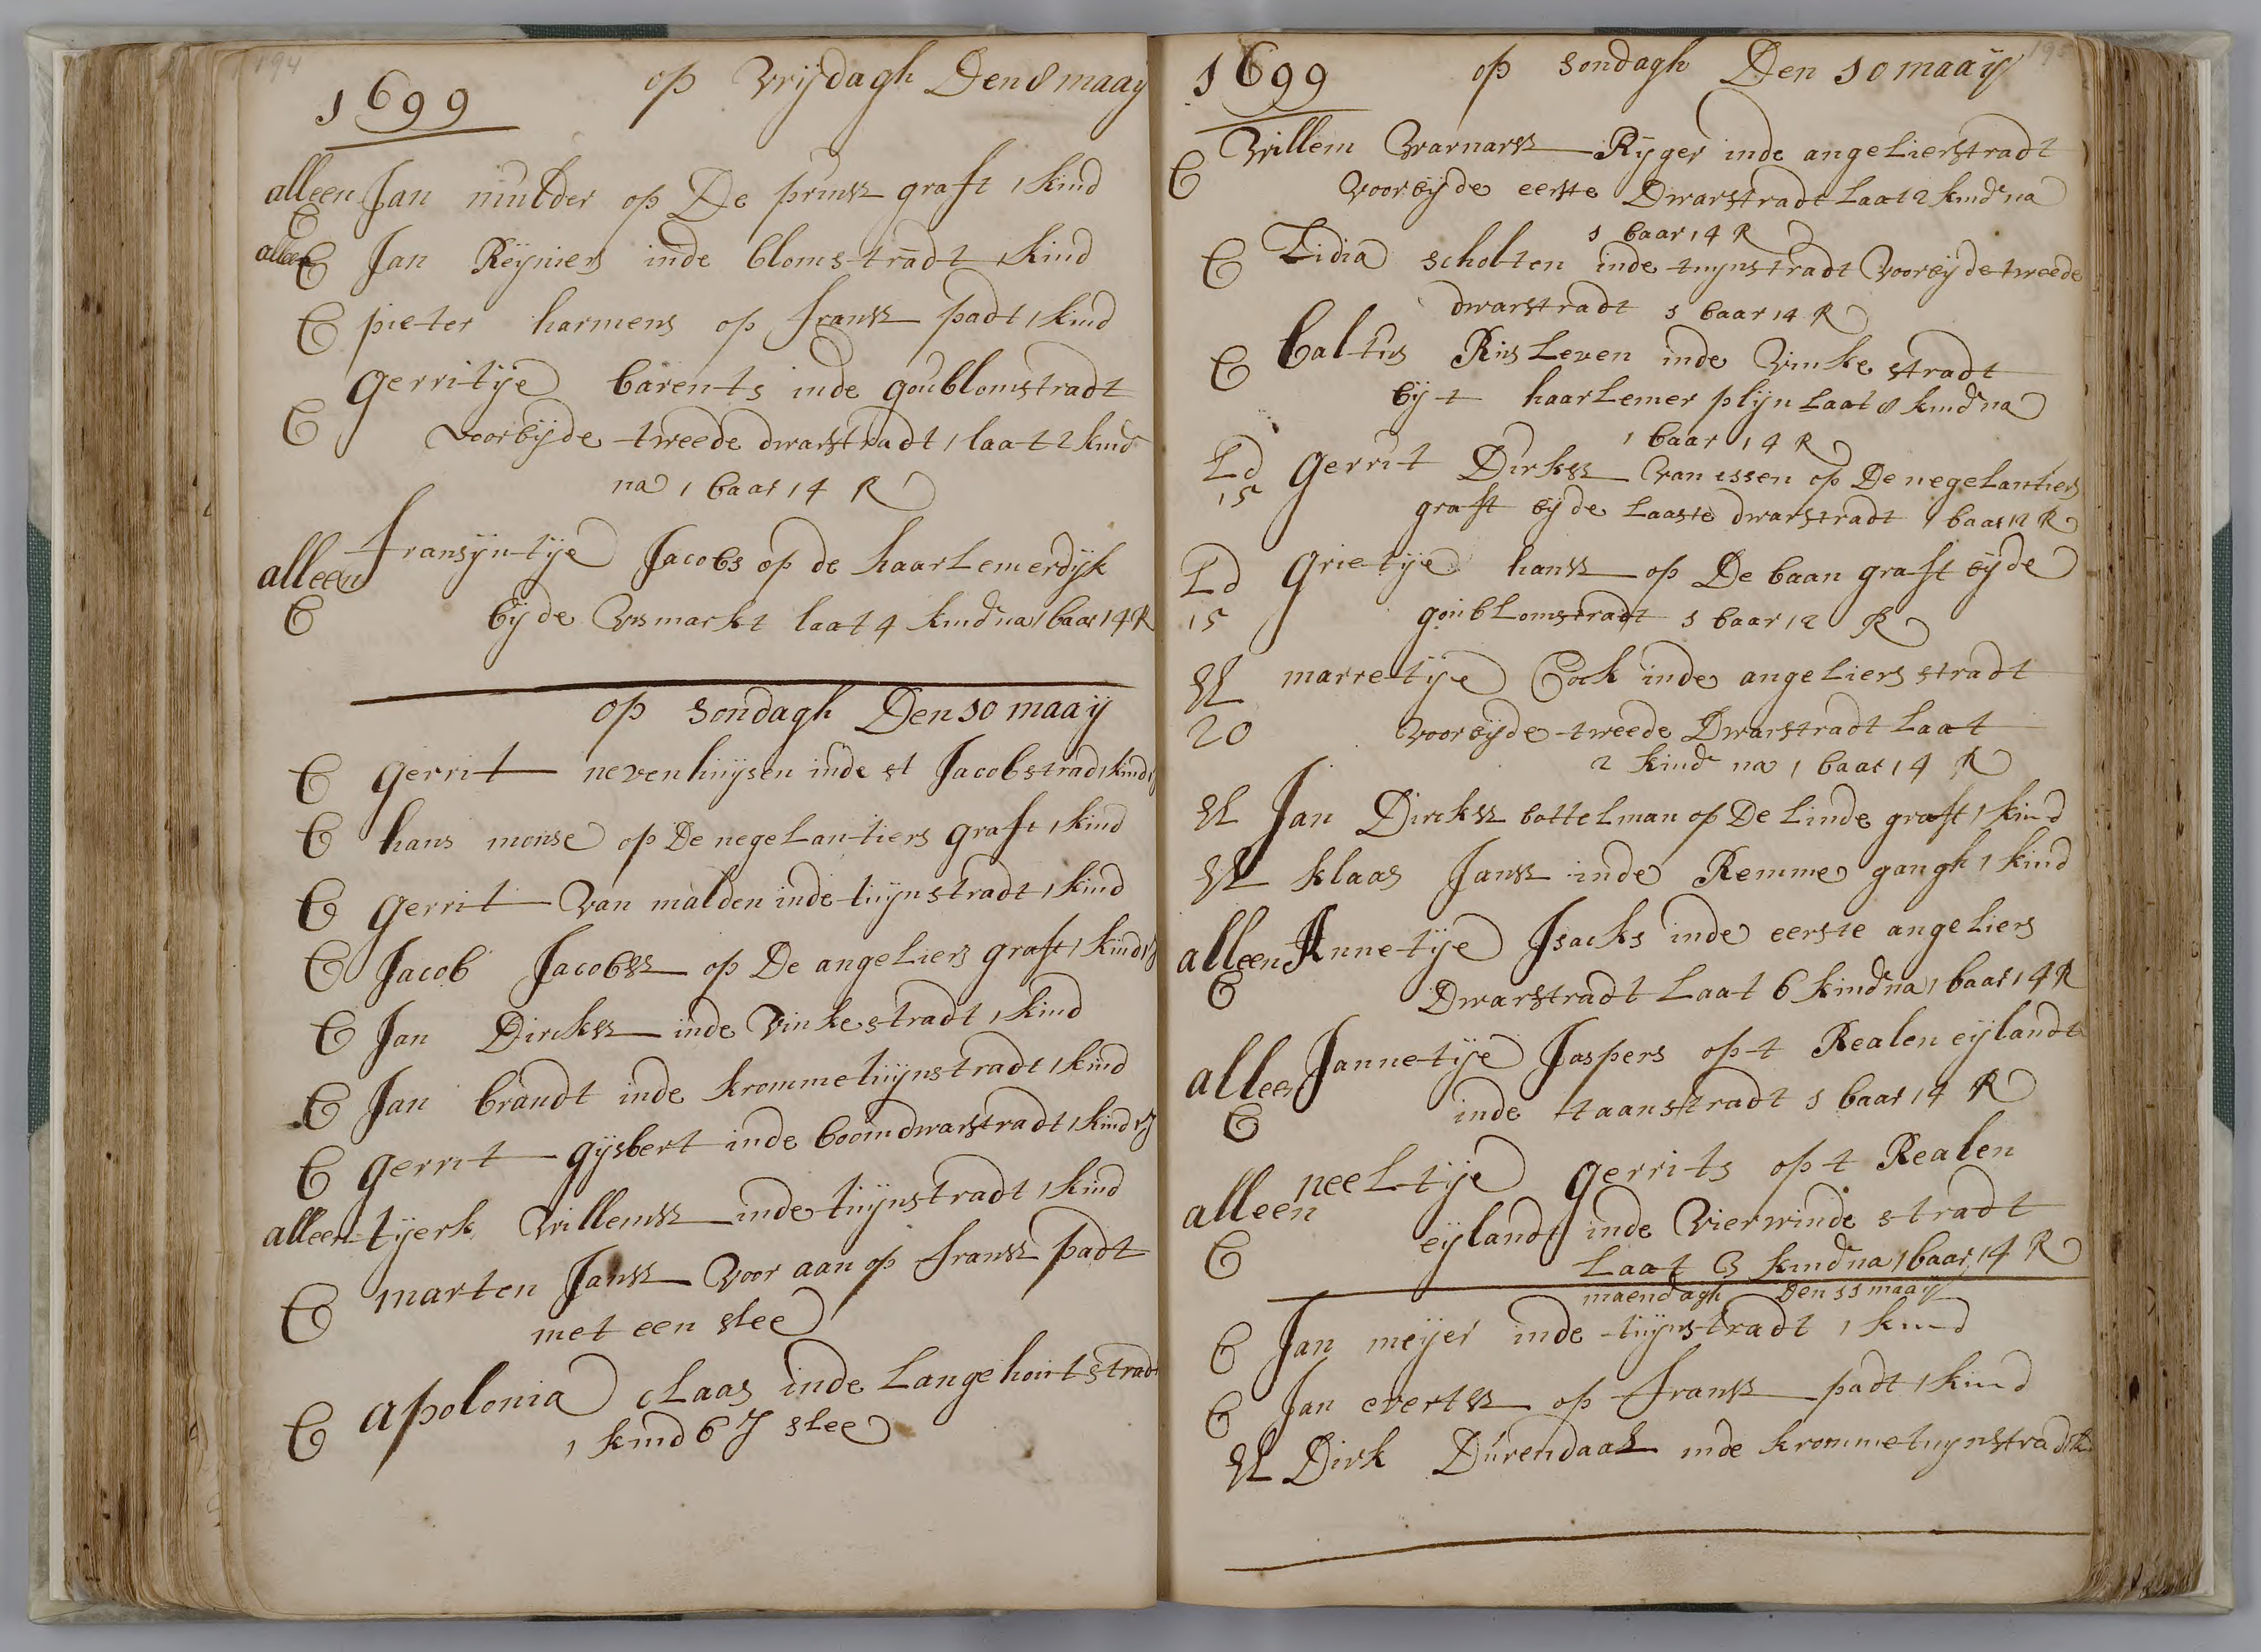 194
1699 op Vrijdagh Den 8 maaij
alleen Jan mulder op De prinss graft 1 kind
C
alleen C Jan Reijniers inde blomstradt 1 kind
C pieter harmens op franss padt 1 kind
gerritije barents inde goublomstradt
C voorbijde tweede dwarstradt 1 laat 2 kind
na 1 baar 14 R
alleen fransijntije Jacobs op de haarLemerdijk
C bijde Vismarkt laat 4 kind na 1 baar 14 R
op sondagh Den 10 maaij
C gerrit nevenhuijsen inde st Jacobstrad 1 kind
C hans monse op De negelantiers graft 1 kind
C gerrit Van malden inde tuijnstradt 1 kind
C Jacob Jacobss op De angeliers graft 1 kind
C Jan Dirckss inde Vinkestradt 1 kind
C Jan brandt inde krommetuijnstradt 1 kind
C gerrit gijsbert inde boomdwarstradt 1 kind
alleen tjerk Willemss inde tuijnstradt 1 kind
C marten Janss Voor aan op franss padt
met een slee
C apolonia claas inde Lange houtstradt
1 kind 6 J slee
195
1699 op sondagh Den 10 maaij
Willem Warnarss Rijger inde angelierstradt
C voorbijde eerste Dwarstradt Laat 2 kind na
1 baar 14 R
C Lidia scholten inde tuijnstradt Voorbijde tweede
dwarstradt 1 baar 14 R
C baltus Risleven inde Vinke stradt
bij t haarlemer plijn Laat 8 kind na
1 baar 14 R
Ld gerrit Dirkss Van essen op De negelantiers
15 graft bijde Laaste dwarstradt 1 baar 12 R
Ld grietije hanss op De baangraft bijde
15 goublomstradt 1 baar 12 R
marretije Cock inde angeliers stradt
20 voorbijde tweede Dwarstradt Laat
2 kind na 1 baar 14 R
Jan Dirckss bottelman op De Linde graft 1 kind
klaas Janss inde Remme gangh 1 kind
alleen Annetije Isacks inde eerste angeliers
C Dwarstradt Laat 6 kind na 1 baar 14 R
alleen Jannetije Jaspers op t Realen eijlandt
C inde taanstradt 1 baar 14 R
neeltije gerrits op t Realen
alleen eijlandt inde Vierwinde stradt
C Laat 3 kind na 1 baar 14 R
maendagh Den 11 maaij
C Jan meijer inde tuijnstradt 1 kind
C Jan evertss op franss padt 1 kind
Dirk Durendaal inde krommetuijnstradt